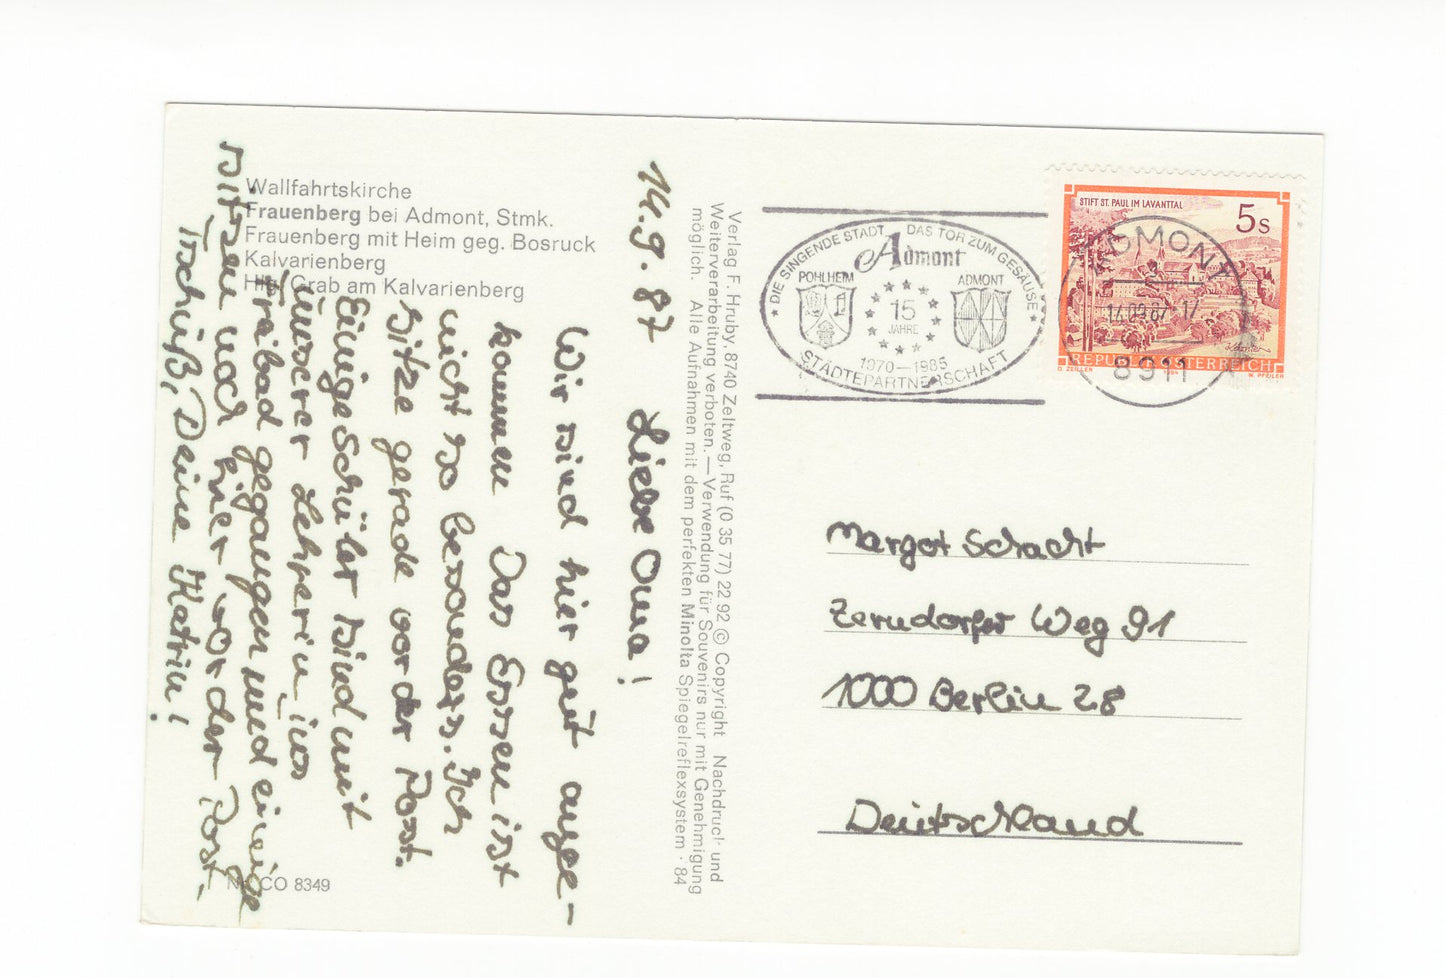 Wallfahrtskirche
Frauenberg bei Admont, Stmk.
Frauenberg mit Heim geg. Bosruck
Kalvarienberg
Hlg. Grab am Kalvarienberg
14.9.87
Liebe Oma!
Wir sind hier gut ange-
kommen Das Essen ist
nicht so besonders. Ich
sitze gerade vor der Post.
Einige Schüler sind mit
unserer Lehrerin ins
Freibad gegangen und einige
sitzen noch hier vor der Post.
Tschüß, Deine Katrin!
Nr. CO 8349
Verlag F. Hruby, 8740 Zeltweg, Ruf (0 35 77) 22 92 © Copyright Nachdruck und
Weiterverarbeitung verboten. — Verwendung für Souvenirs nur mit Genehmigung
möglich. Alle Aufnahmen mit dem perfekten Minolta Spiegelreflexsystem · 84
* DIE SINGENDE STADT DAS TOR ZUM GESÄUSE *
Admont
POHLHEIM
ADMONT
15
JAHRE
1970—1985
STÄDTEPARTNERSCHAFT
STIFT ST. PAUL IM LAVANTTAL
5s
REPUBLIK ÖSTERREICH
O. ZEILLER
W. PFEILER
ADMONT
8911
Margot Schacht
Zerndorfer Weg 91
1000 Berlin 28
Deutschland